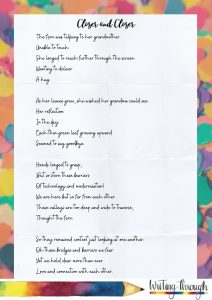 Closer and Closer
The fern was talking to her grandmother
Unable to touch
She longed to reach further through the screen
Wanting to deliver
A hug
As her leaves grew, she wished her grandma could see
Her reflection
In the day
Each thin green leaf growing upward
Seemed to say goodbye
Hands longed to grasp,
But so stern those barriers
Of technology and modernisation!
We are here but so far from each other
Those valleys are too deep and wide to traverse,
Thought the fern
So they remained content just looking at one another
Oh there bridges and barriers we fear
Yet we hold dear more than ever
Love and connection with each other.
Writing Through